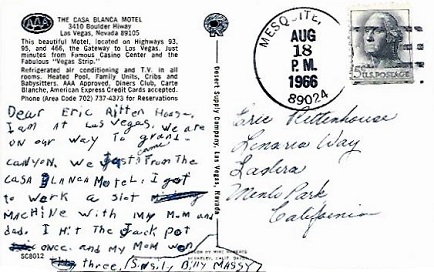 AAA
THE CASA BLANCA MOTEL
3410 Boulder Hiway
Las Vegas, Nevada 89105
This beautiful Motel, located on Highways 93,
95, and 466, the Gateway to Las Vegas. Just
minutes from Famous Casino Center and the
Fabulous "Vegas Strip."
Refrigerated air conditioning and T.V. in all
rooms. Heated Pool, Family Units, Cribs and
Babysitters. AAA Approved. Diners Club, Carte
Blanche, American Express Credit Cards accepted.
Phone (Area Code 702) 737-4373 for Reservations
Dear Eric Ritten House
I am at Las Vegas. We are
on our way to grand
canyon. We came Just from the
CASA BLANCA MOTEL. I got
to work a slot
MACHINE with my MoM and
dad. I Hit the Jack pot
once. and My MoM won
three. Billy MASSY
SC8012
Desert Supply Company, Las Vegas, Nevada
MESQUITE,
AUG
18
P.M.
1966
89024
5¢ U.S. POSTAGE
Eric Rittenhouse
Lenaria Way
Ladera
Menlo Park
California